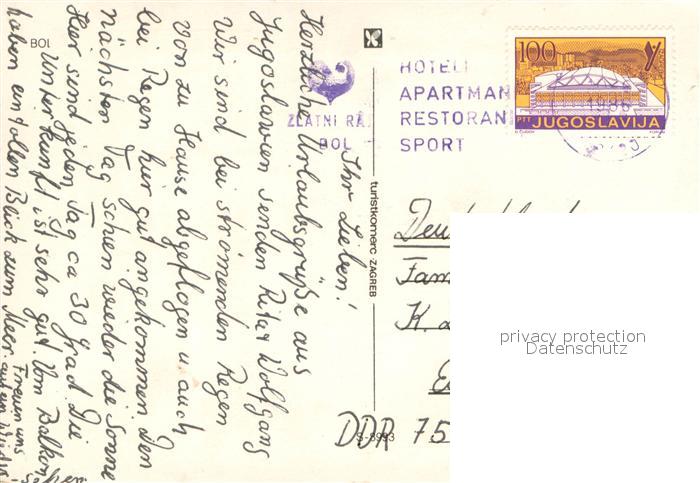 BOL
Ihr Lieben!
Herzliche Urlaubsgrüße aus
Jugoslawien senden Rita + Wolfgang
Wir sind bei strömenden Regen
von zu Hause abgeflogen u. auch
bei Regen hier gut angekommen. Den
nächsten Tag schien wieder die Sonne
Hier sind jeden Tag ca 30 grad. Die
Unterkunft ist sehr gut. Vom Balkon
haben einen tollen Blick zum Meer.
Freuen uns
auf ein Wieder-
sehen
turistkomerc ZAGREB
S-8993
ZLATNI RAT
BOL
HOTELI
APARTMAN
RESTORAN
SPORT
100
1986
PTT JUGOSLAVIJA
Deutschland
Fam
K.
DDR 75
privacy protection
Datenschutz